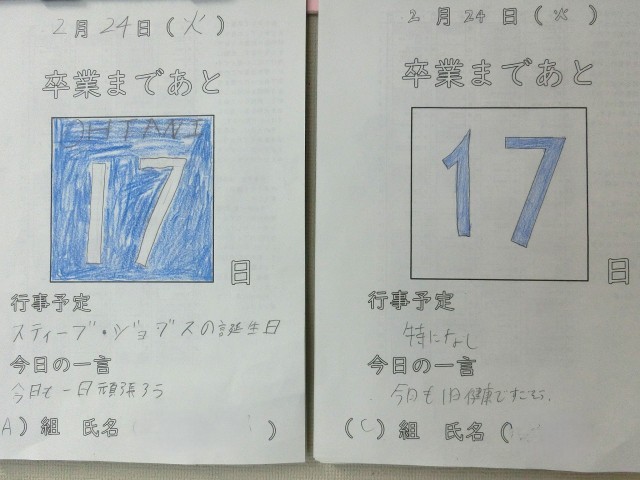 2月24日(火)
卒業まであと
OHTANI
17
日
行事予定
スティーブ・ジョブズの誕生日
今日の一言
今日も一日頑張ろう
A)組 氏名 )
2月24日(火)
卒業まであと
17
日
行事予定
特になし
今日の一言
今日も1日健康ですごそう。
(C)組 氏名(